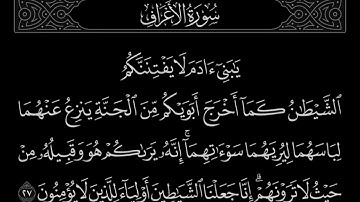 سُورَةُ الأَعْرَافِ
يَٰبَنِىٓ ءَادَمَ لَا يَفْتِنَنَّكُمُ
ٱلشَّيْطَٰنُ كَمَآ أَخْرَجَ أَبَوَيْكُم مِّنَ ٱلْجَنَّةِ يَنزِعُ عَنْهُمَا
لِبَاسَهُمَا لِيُرِيَهُمَا سَوْءَٰتِهِمَآ ۗ إِنَّهُۥ يَرَىٰكُمْ هُوَ وَقَبِيلُهُۥ مِنْ
حَيْثُ لَا تَرَوْنَهُمْ ۗ إِنَّا جَعَلْنَا ٱلشَّيَٰطِينَ أَوْلِيَآءَ لِلَّذِينَ لَا يُؤْمِنُونَ ٢٧